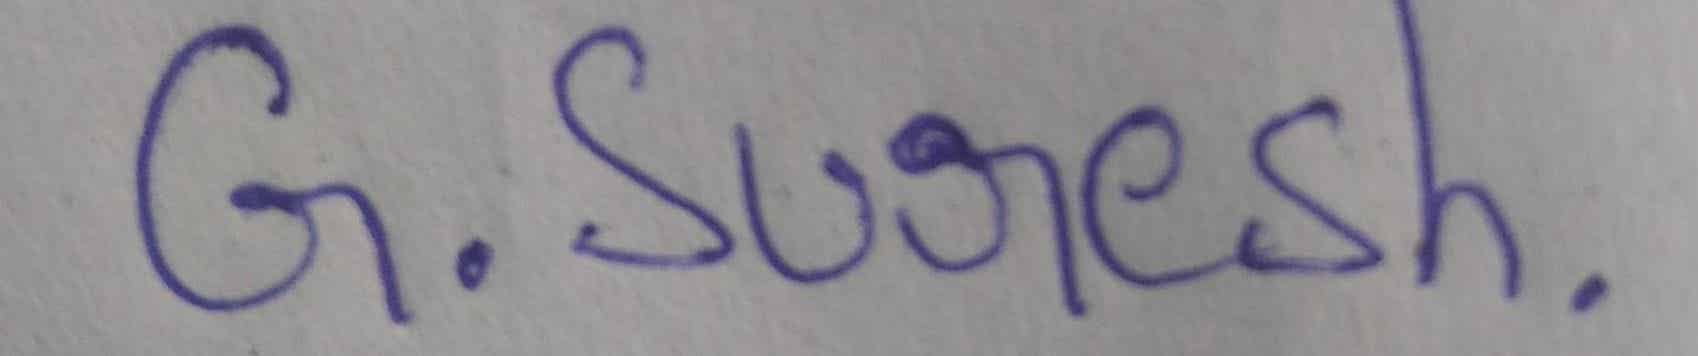 G. Suresh.